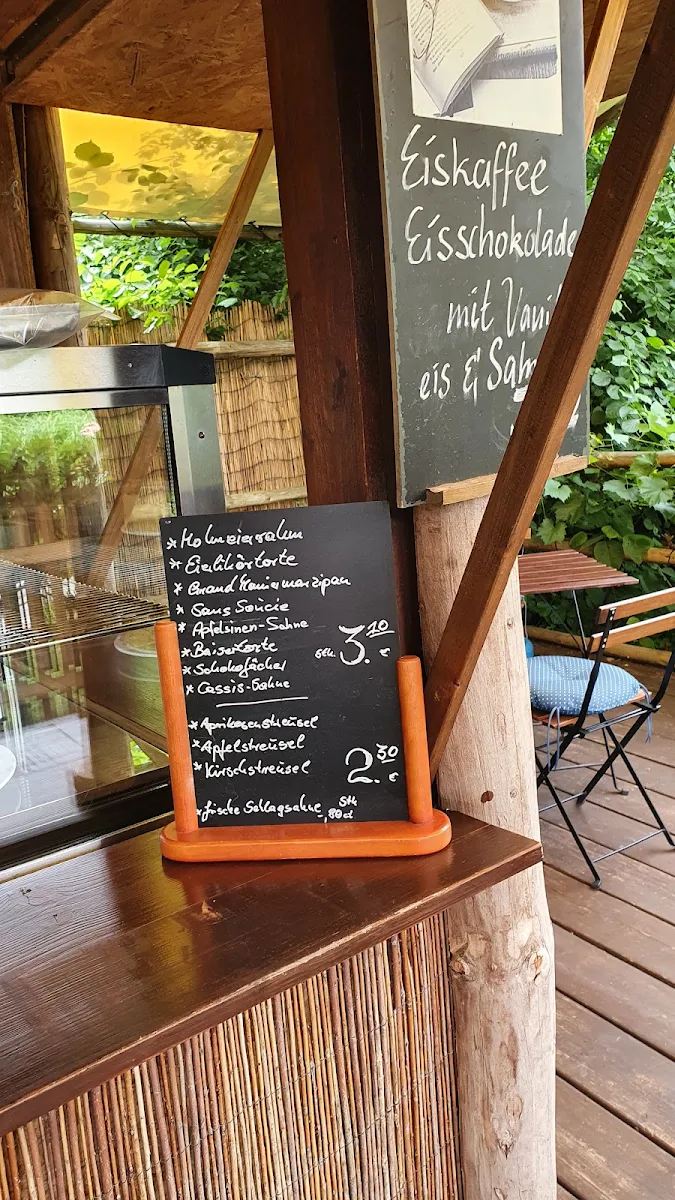 Eiskaffee
Eisschokolade
mit Vanil
eis & Sahn
* Molmeierahm
* Eierlikörtorte
* Grand Maniamarzipan
* Sans Soucie
* Apfelsinen-Sahne
* Baisertorte
* Schokofächer
* Cassis-Sahne
Stk. 3.10 €
* Aprikosenstreusel
* Apfelstreusel
* Kirschstreusel
2.30 €
* frische Schlagsahne Stk -,80 ct